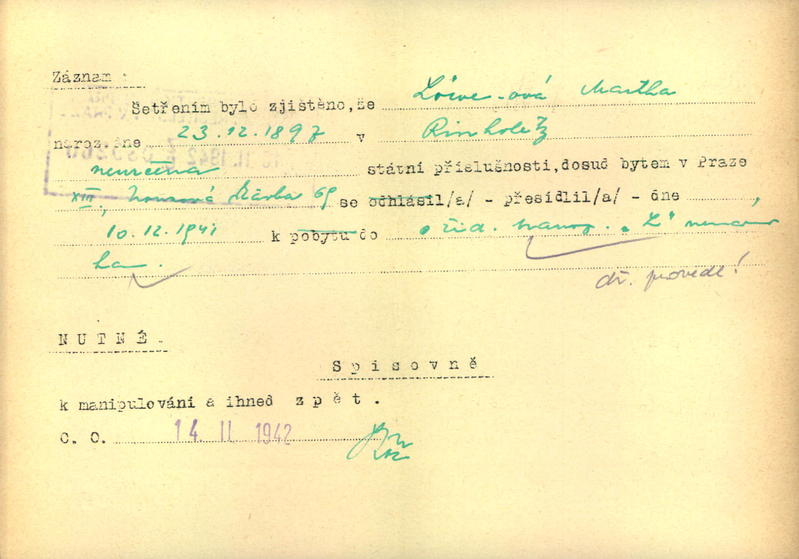 Záznam :
Šetřením bylo zjištěno, že Löwe-ová Martha
naroz. dne 23.12.1897 v Rinholetz
neurčena státní příslušnosti, dosud bytem v Praze
XIII., 69 se odhlásil/a/ - přesídlil/a/ - dne
10.12.1941 k pobytu do žid. transp. „L"
dr. provede!
NUTNÉ.
Spisovně
k manipulování a ihned zpět.
C. O. 14 II 1942